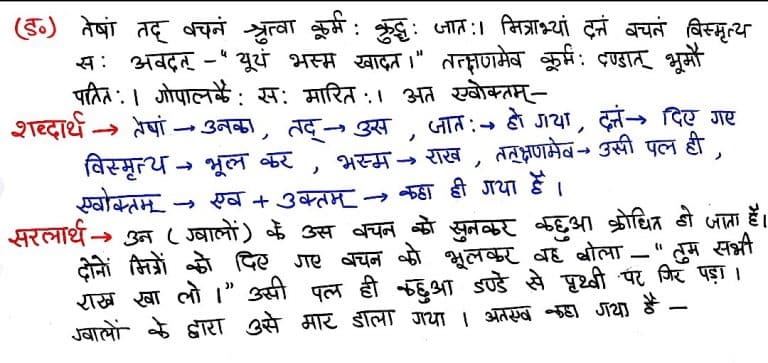 (ड॰) तेषां तद् वचनं श्रुत्वा कूर्मः क्रुद्धः जातः। मित्राभ्यां दत्तं वचनं विस्मृत्य
सः अवदत् - "यूयं भस्म खादत।" तत्क्षणमेव कूर्मः दण्डात् भूमौ
पतितः। गोपालकैः सः मारितः। अत एवोक्तम् -
शब्दार्थ → तेषां → उनका, तद् → उस, जातः → हो गया, दत्तं → दिए गए
विस्मृत्य → भूल कर, भस्म → राख, तत्क्षणमेव → उसी पल ही,
एवोक्तम् → एव + उक्तम् → कहा ही गया है।
सरलार्थ → उन (ग्वालों) के उस वचन को सुनकर कछुआ क्रोधित हो जाता है।
दोनों मित्रों को दिए गए वचन को भूलकर वह बोला - "तुम सभी
राख खा लो।" उसी पल ही कछुआ डण्डे से पृथ्वी पर गिर पड़ा।
ग्वालों के द्वारा उसे मार डाला गया। अतएव कहा गया है -